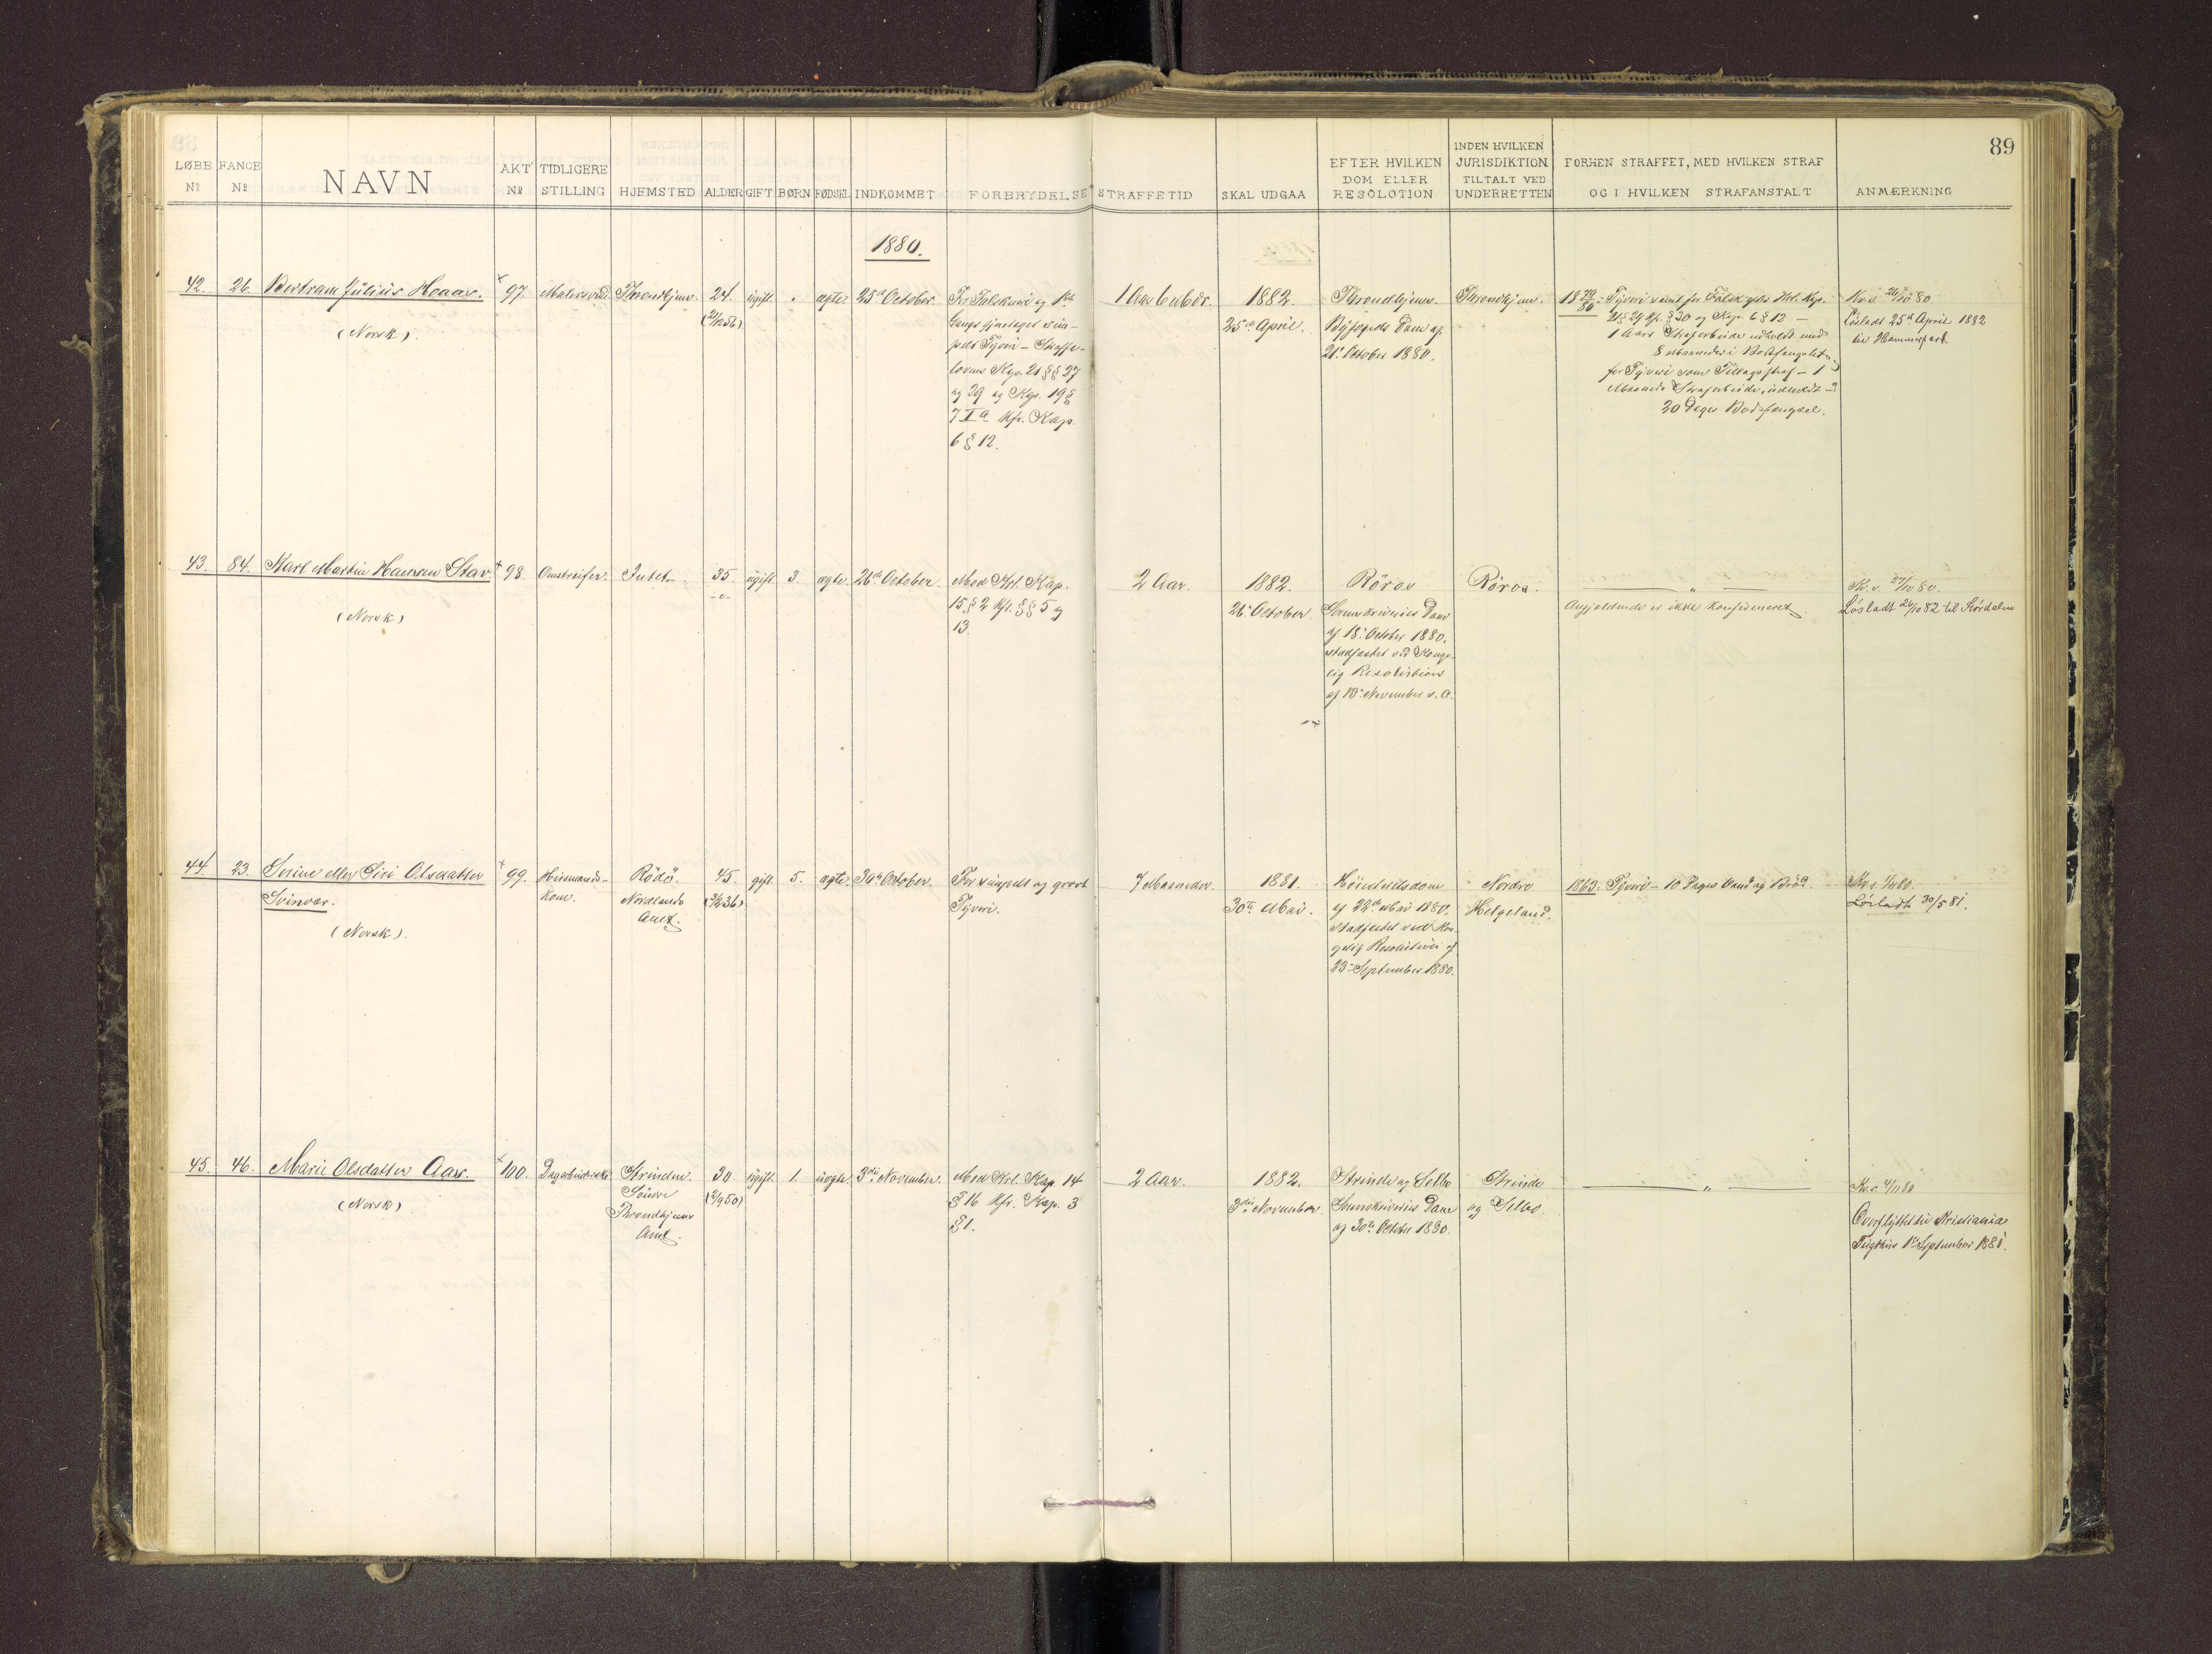 89
LØBE Nº
FANGE Nº
NAVN
AKT Nº
TIDLIGERE STILLING
HJEMSTED
ALDER
GIFT
BØRN
FØDSEL
INDKOMMET
FORBRYDELSE
STRAFFETID
SKAL UDGAA
EFTER HVILKEN DOM ELLER RESOLOTION
INDEN HVILKEN JURISDIKTION TILTALT VED UNDERRETTEN
FORHEN STRAFFET, MED HVILKEN STRAF OG I HVILKEN STRAFANSTALT
ANMÆRKNING
1880.
42. 26. Bertram Julius Hoaas.
(Norsk).
97.
Malersvend
Throndhjem.
24.
(21/12 56)
ugift.
"
ægte
25de October.
For Falskneri og 1ste
Gangs fjerdegel sim-
pelt Tyveri – Straffe-
lovens Kap. 21 §§ 27
og 29 og Kap. 19 §
7 I a Kfr. Kap.
6 § 12.
1 Aar 6 Mdr.
1882.
25de April.
Throndhjems
Byfogeds Dom af
21de October 1880.
Throndhjem.
18 79/80: Tyveri samt for Falsk efter Krl. Kap.
21 § 29 kfr. § 30 og Kap. 6 § 12 –
1 Aars Strafarbeide udholdt med
8 Maaneder i Bodsfængslet –
for Tyveri som Tillægsstraf – 1
Maaneds Strafarbeide, udholdt –
20 Dages Bodsfængsel.
Kv. s. 26/10 80
Løsladt 25de April 1882
til Hammerfest
43. 84. Karl Martin Hansen Stav
(Norsk)
98
Omstreifer.
Intet.
35.
-o-
ugift.
3.
ægte.
26de October.
Mod Krl. Kap.
15 § 2 Kfr. §§ 5 og
13.
2 Aar.
1882.
26 October
Röros
Sorenskriveries Dom
af 18 October 1880,
stadfæstet ved Konge-
lig Resolution
af 18 November s. A.
Röros.
"
Angjeldende er ikke Konfirmeret
Kv. s. 27/10 80.
Løsladt 26/10 82 til Størdalen
44. 23. Serine eller Siri Olsdatter
Svinvær.
(Norsk).
99.
Huusmands-
Kone.
Rödö.
Nordlands
Amt.
45.
gift.
5.
ægte.
30te October.
For simpelt og grovt
Tyveri.
7 Maaneder.
1881.
30te Mai.
Höiesteretsdom
af 22de Mai 1880,
stadfæstet ved Kon-
gelig Resolution af
23 September 1880.
Nordre
Helgeland.
1863: Tyveri – 10 Dages Vand og Bröd.
Kv. s. 1/11 80.
Løsladt 30/5 81.
45. 46. Marie Olsdatter Aas.
(Norsk)
100.
Strinden.
Söndre
Throndhjems
Amt.
30.
(2/9 50)
ugift.
1.
uægte
3die November.
Mod Krl. Kap. 14
§ 16 Kfr. Kap. 3
§ 1.
2 Aar.
1882.
3die November
Strinde og Selbo
Sorenskriveries Dom
af 30te October 1880.
Strinde
og Selbo.
"
Kv. s. 4/11 80
Overflyttet til Kristiania
Tugthus 1ste September 1881.